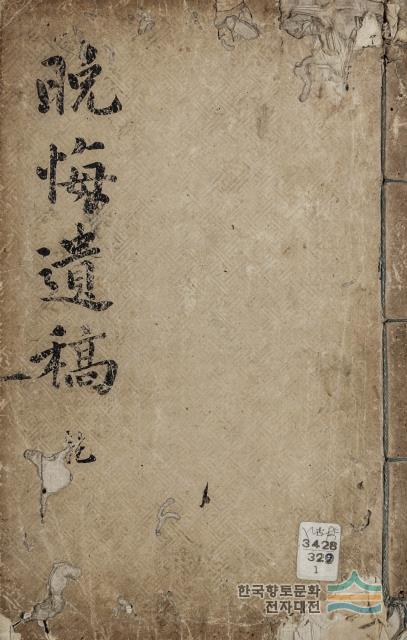 晩悔遺稿
乾
3428
329
1
한국향토문화
전자대전